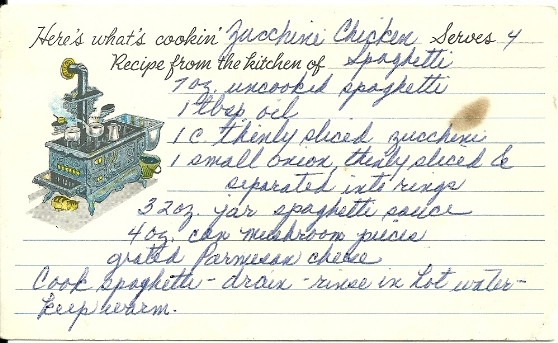 Here's what's cookin' Zucchini Chicken Serves 4
Recipe from the kitchen of Spaghetti
7 oz. uncooked spaghetti
1 tbsp oil
1 c. thinly sliced zucchini
1 small onion, thinly sliced &
separated into rings
32 oz. jar spaghetti sauce
4 oz. can mushroom pieces
grated Parmesan cheese
Cook spaghetti - drain - rinse in hot water -
keep warm.